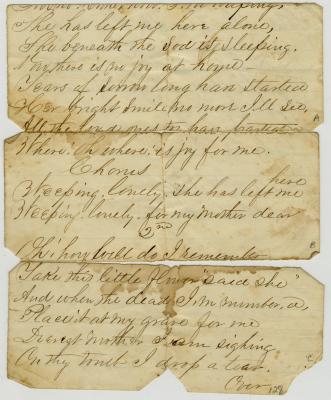 She has left me here alone,
She beneath the sod is sleeping.
Now there is no joy at home
Tears of sorrow long have started
Her bright smile no more I'll see,
All the loved ones too have parted
Where! Oh where! is joy for me.
Chorus
Weeping, lonely, she has left me here
Weeping, lonely, for my Mother dear
2nd
Oh! how well do I remember
Take this little flower "said she"
And when the dead I'm number,d,
Place it at my grave for me
Dearest Mother I am sighing
On thy tomb I drop a tear.
Over
A
B
C
128